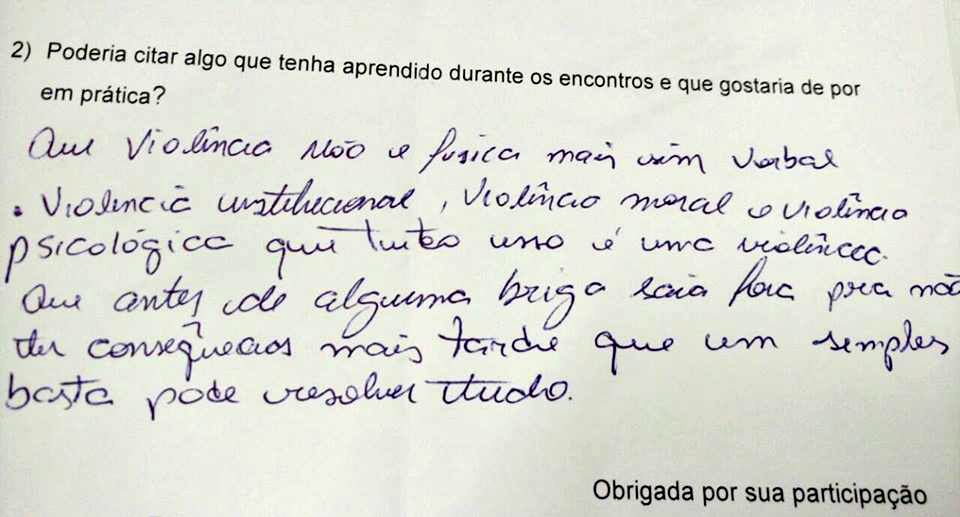 2) Poderia citar algo que tenha aprendido durante os encontros e que gostaria de por
em prática?
Que Violência não é fusica mais sim verbal
. Violencia institucional, violência moral e violência
psicológica que tudo isso é uma violência.
Que antes de alguma briga saia fora pra não
ter consequecias mais tarde que um simples
basta pode resolver tudo.
Obrigada por sua participação